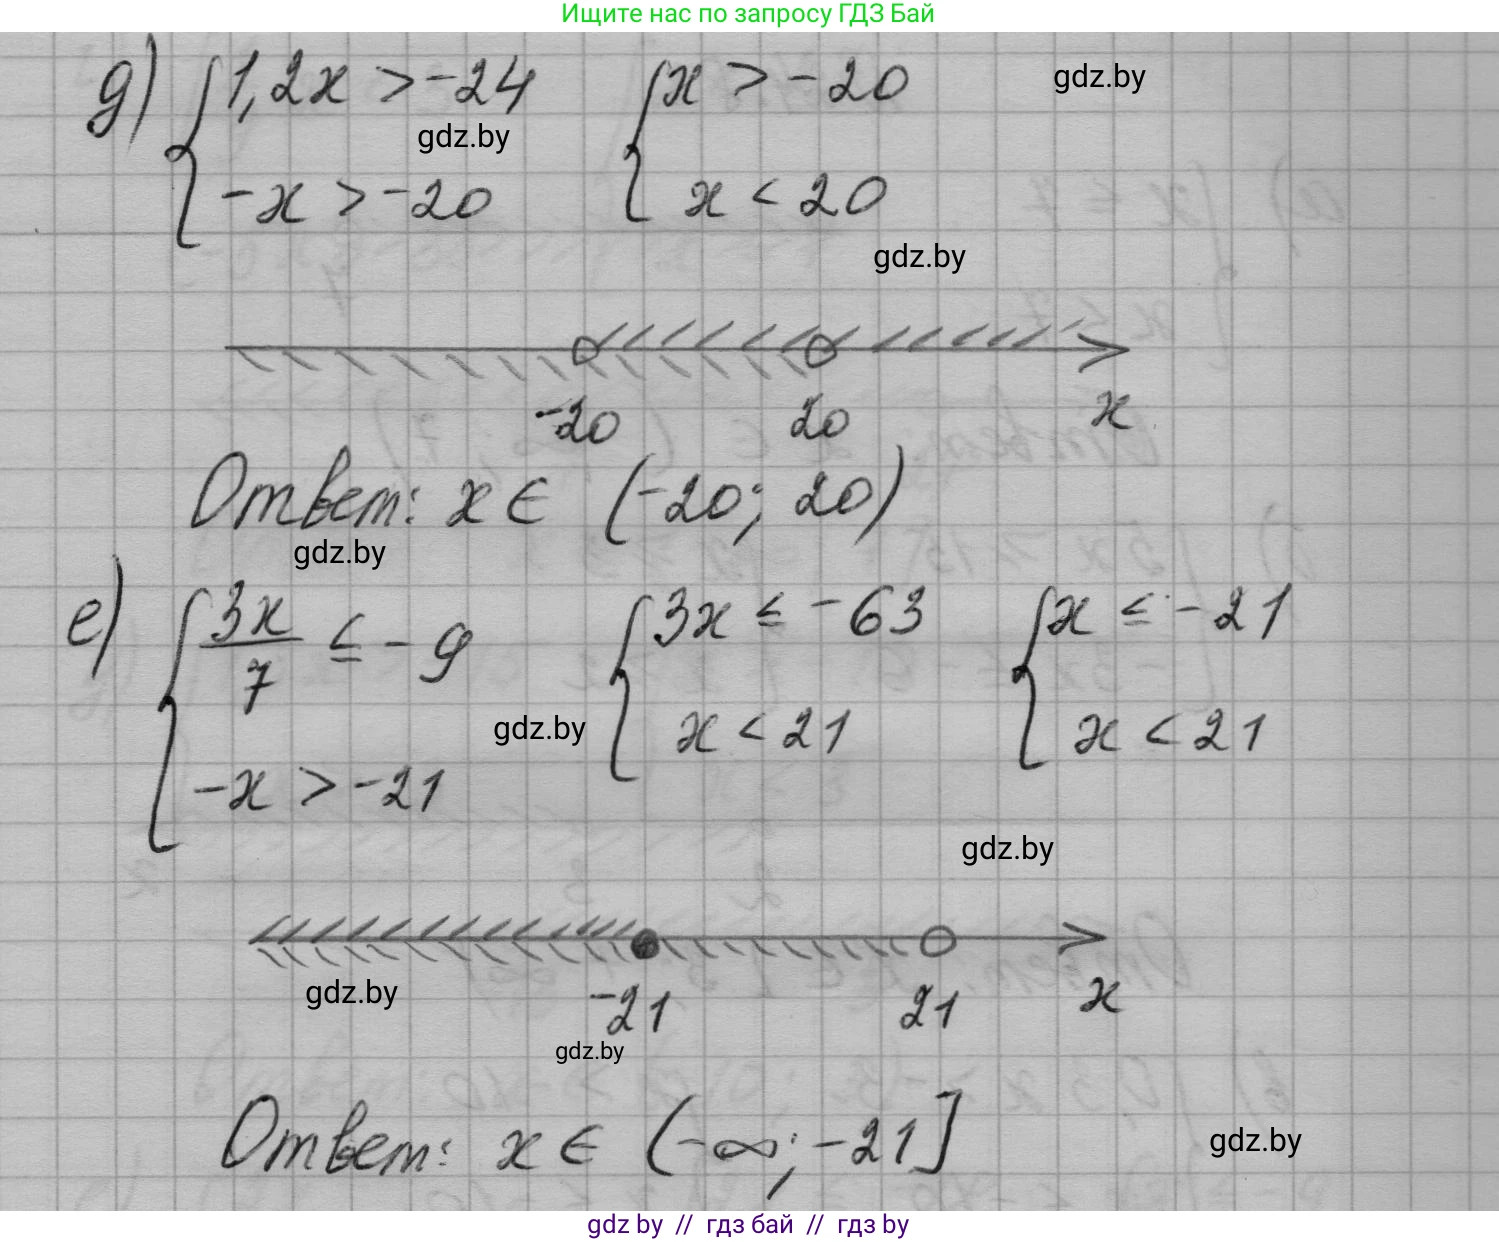 Ищите нас по запросу ГДЗ Бай
д) { 1,2x > -24 { x > -20 gdz.by
gdz.by
-x > -20 x < 20
gdz.by
-20 20 x
Ответ: x ∈ (-20; 20)
gdz.by
е) { 3x/7 ≤ -9 { 3x ≤ -63 { x ≤ -21
gdz.by x < 21 x < 21
-x > -21
gdz.by
gdz.by
-21 21 x
gdz.by
Ответ: x ∈ (-∞; -21]
gdz.by
gdz by // гдз бай // гдз by